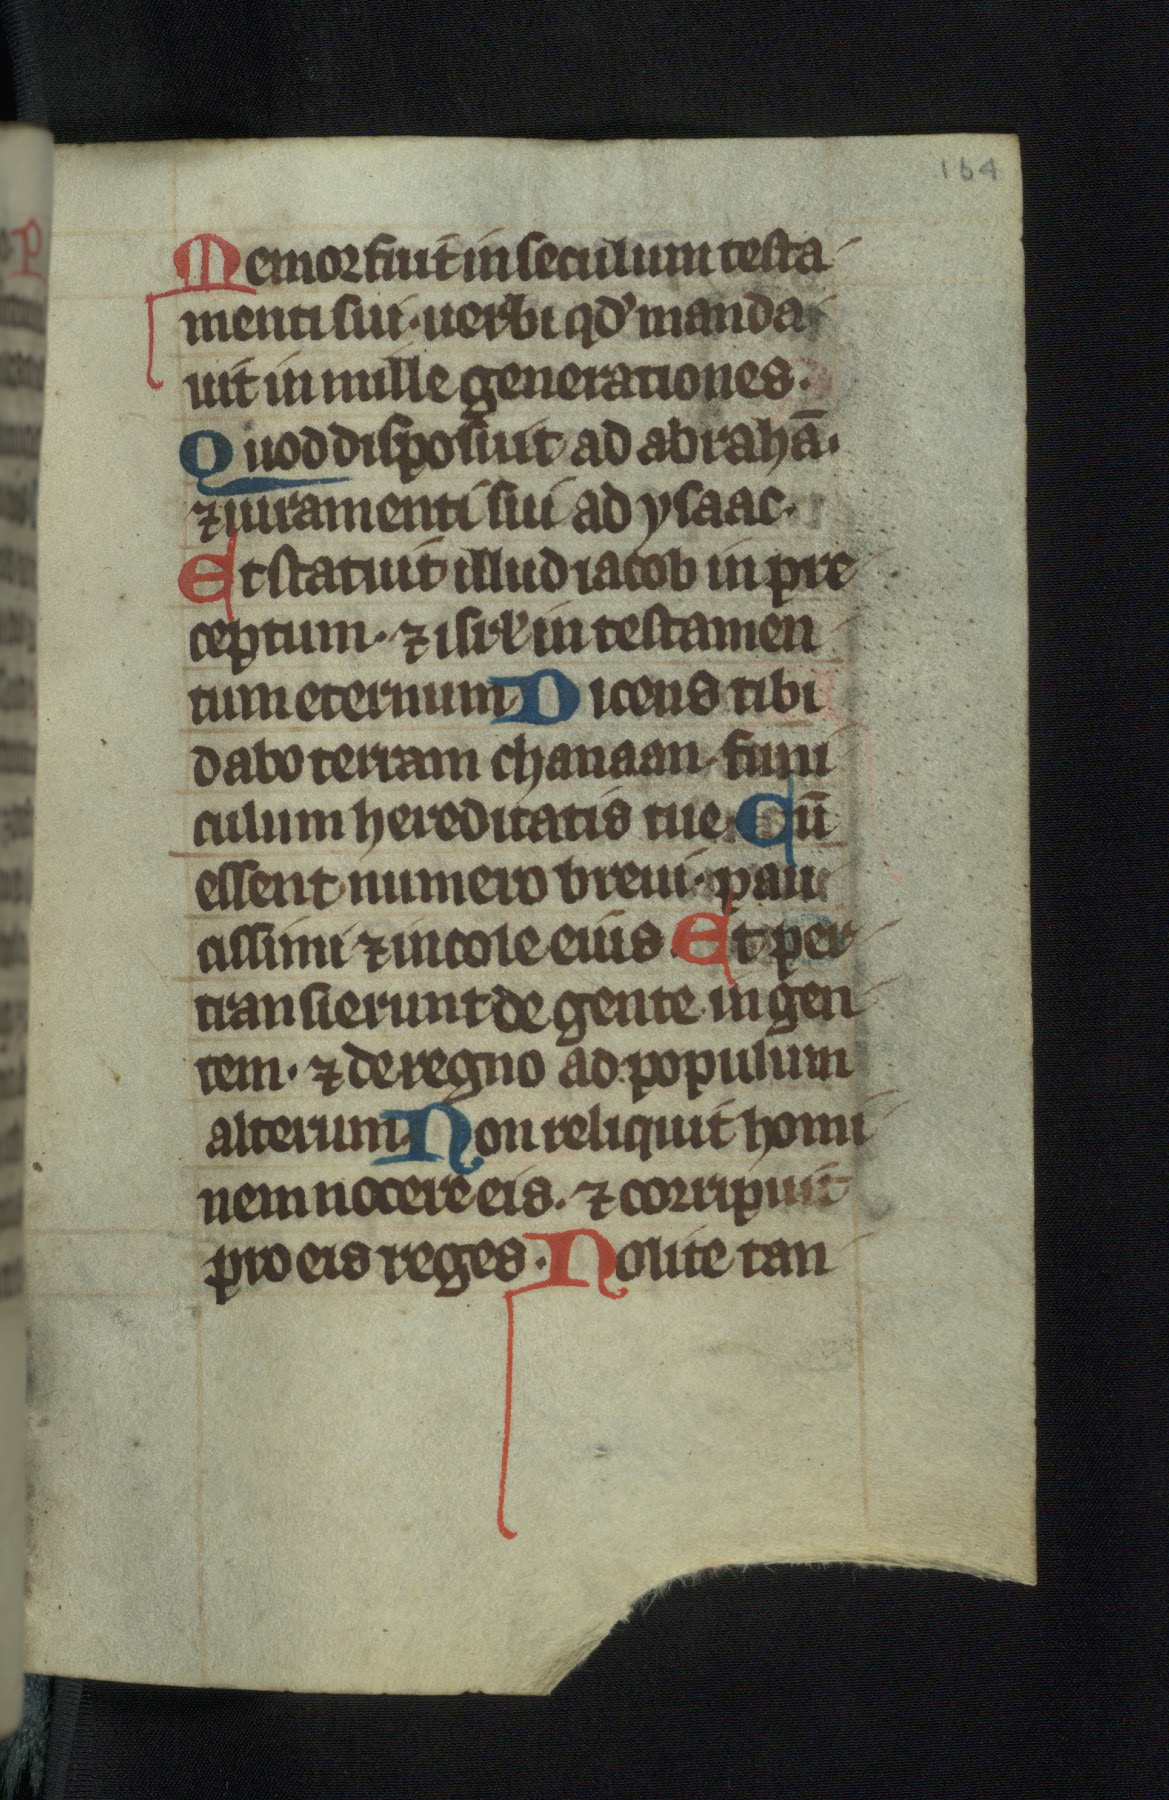 164
Memor fuit in seculum testa
menti sui · uerbi qd' manda
uit in mille generationes ·
Quod disposuit ad abrahā ·
⁊ iuramenti sui ad ysaac ·
Et statuit illud iacob in pre
ceptum · ⁊ isrl' in testamen
tum eternum Dicens tibi
dabo terram chanaan · funi
culum hereditatis tue · Cū
essent numero breui · pau
cissimi ⁊ incole eius · Et per
transierunt de gente in gen
tem · ⁊ de regno ad populum
alterum · Non reliquit homi
nem nocere eis · ⁊ corripuit
pro eis reges · Nolite tan